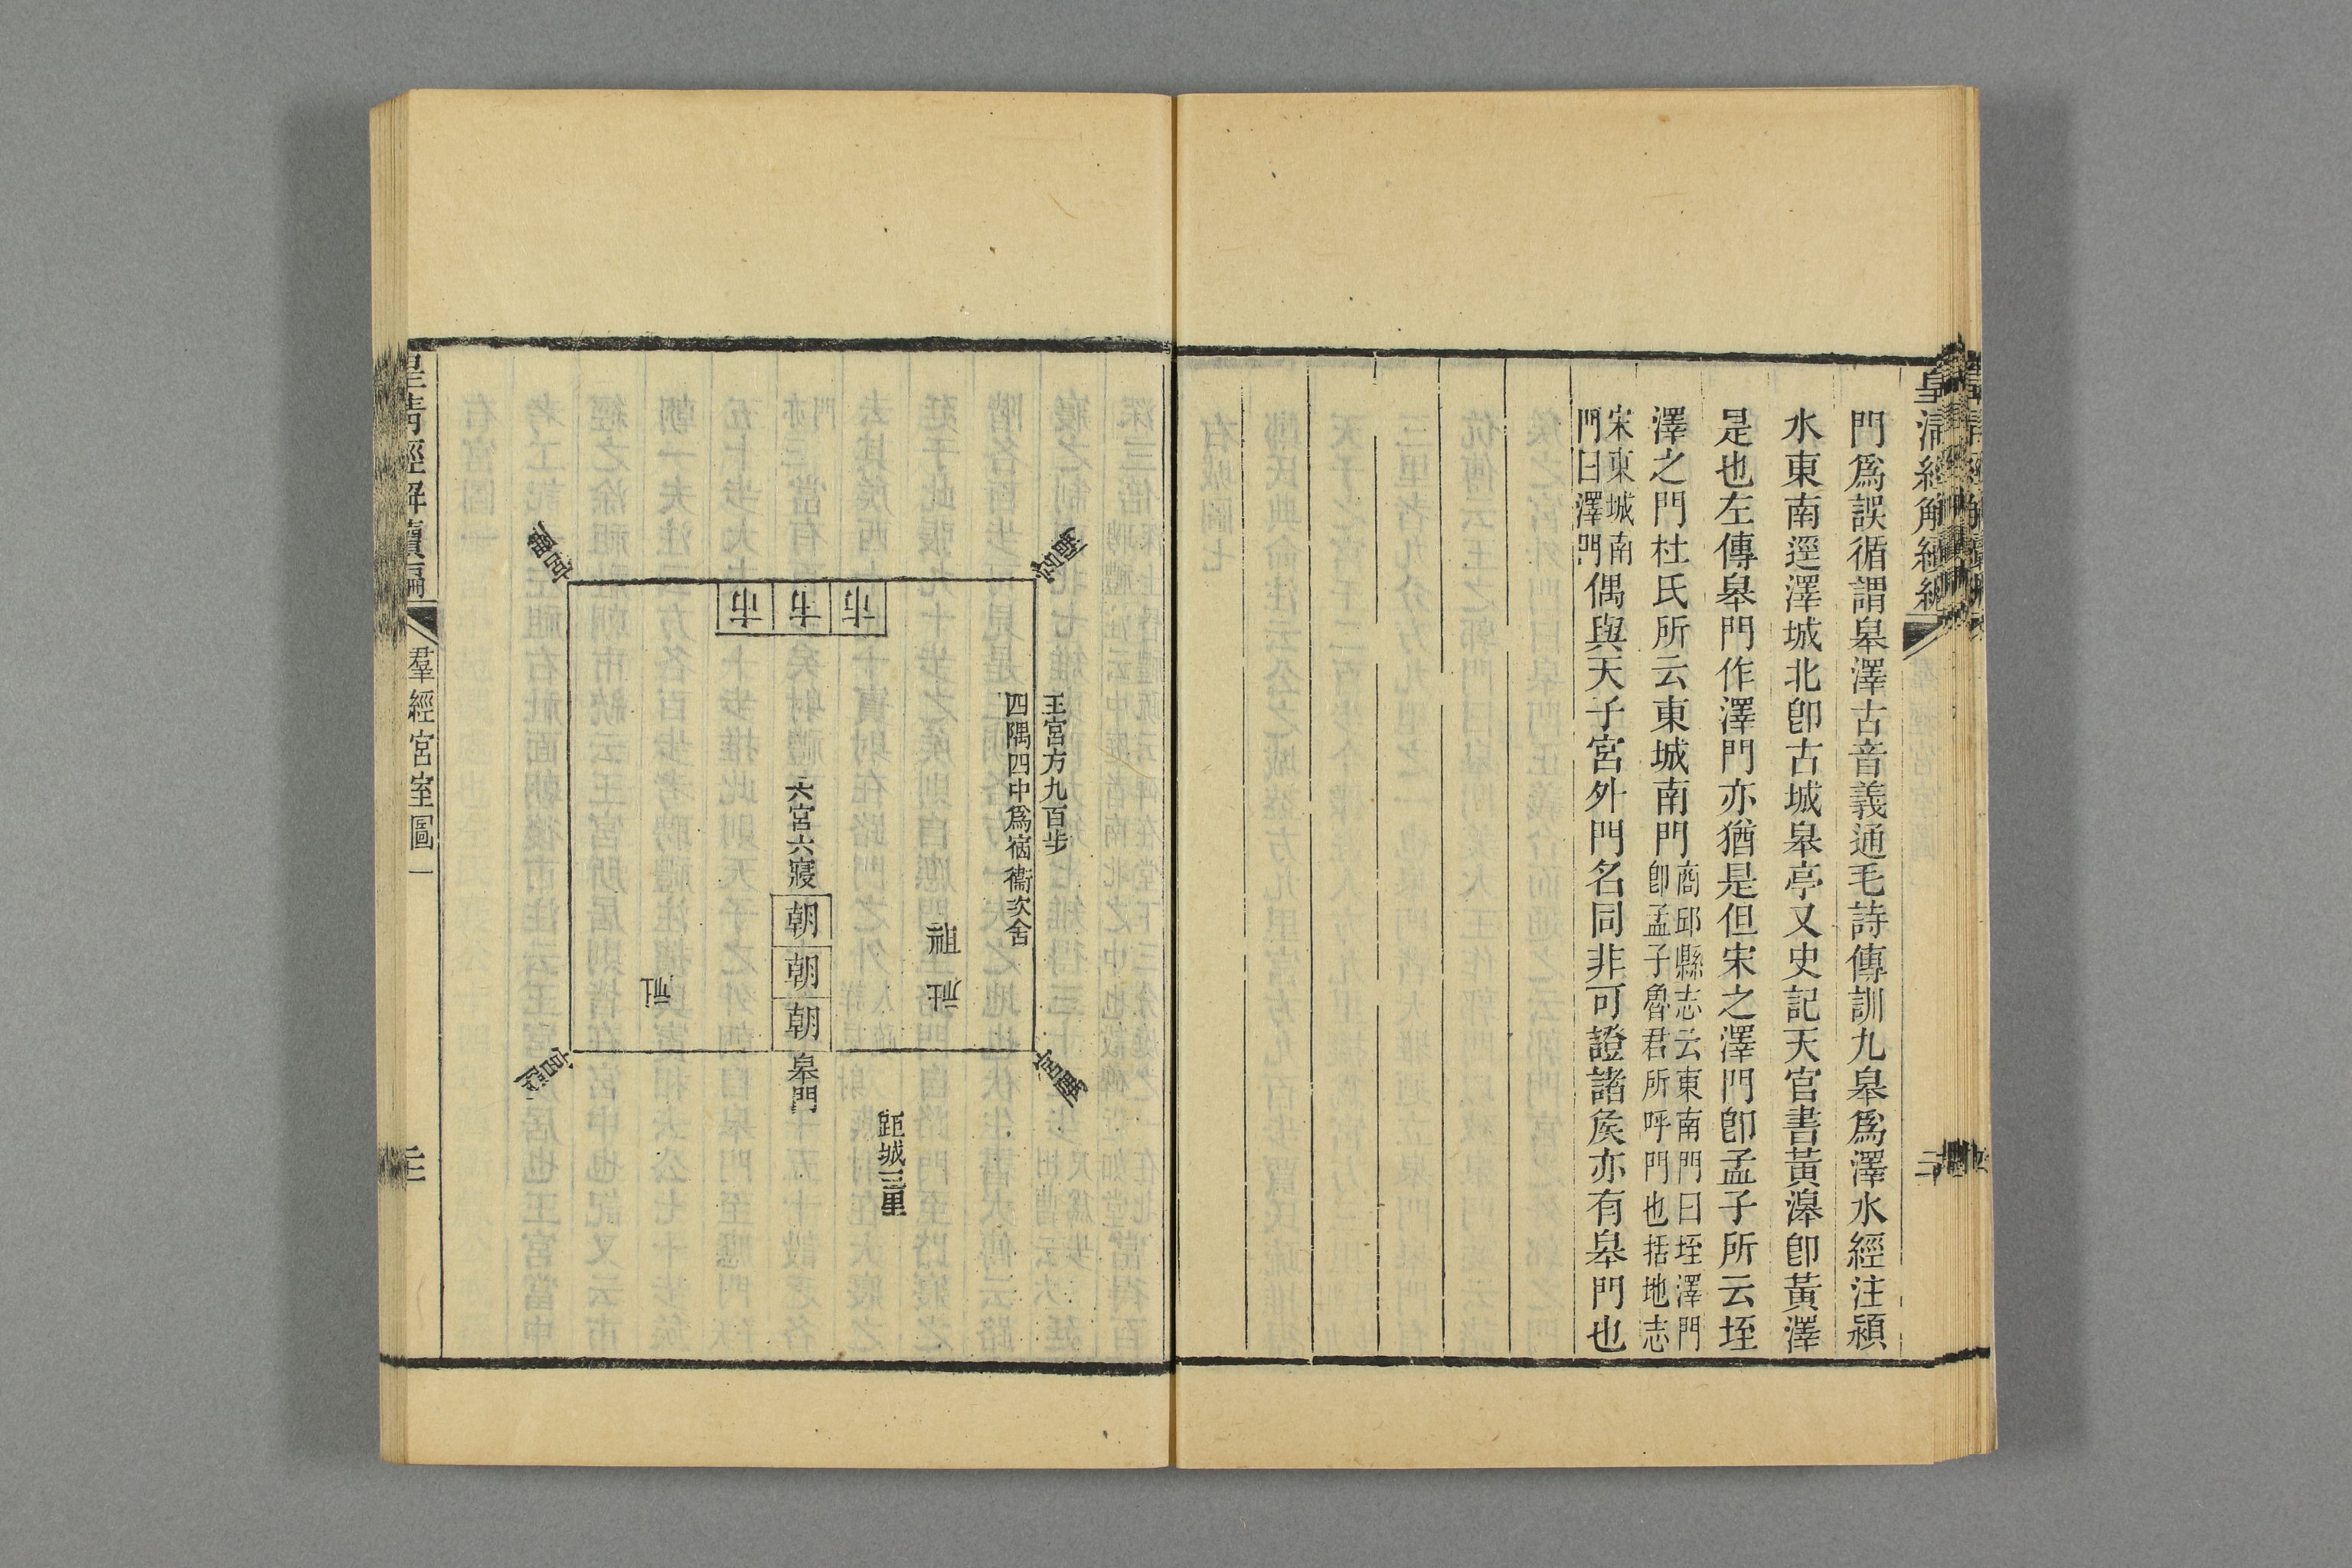 門爲誤循謂皋澤古音義通毛詩傳訓九皋爲澤水經注潁
水東南逕澤城北卽古城皋亭又史記天官書黃澤卽黃澤
是也左傳皋門作澤門亦猶是但宋之澤門卽孟子所云垤
澤之門杜氏所云東城南門商邱縣志云東南門曰垤澤門卽孟子魯君所呼門也括地志
宋東城南門曰澤門偶與天子宮外門名同非可證諸矦亦有皋門也
王宮方九百步
四隅四中爲宿衞次舍
宮隅
宮隅
市
市
市
六宮六寢
朝
朝
朝
皋門
祖
社
社
宮隅
宮隅
距城三里
皇淸經解續編
羣經宮室圖一